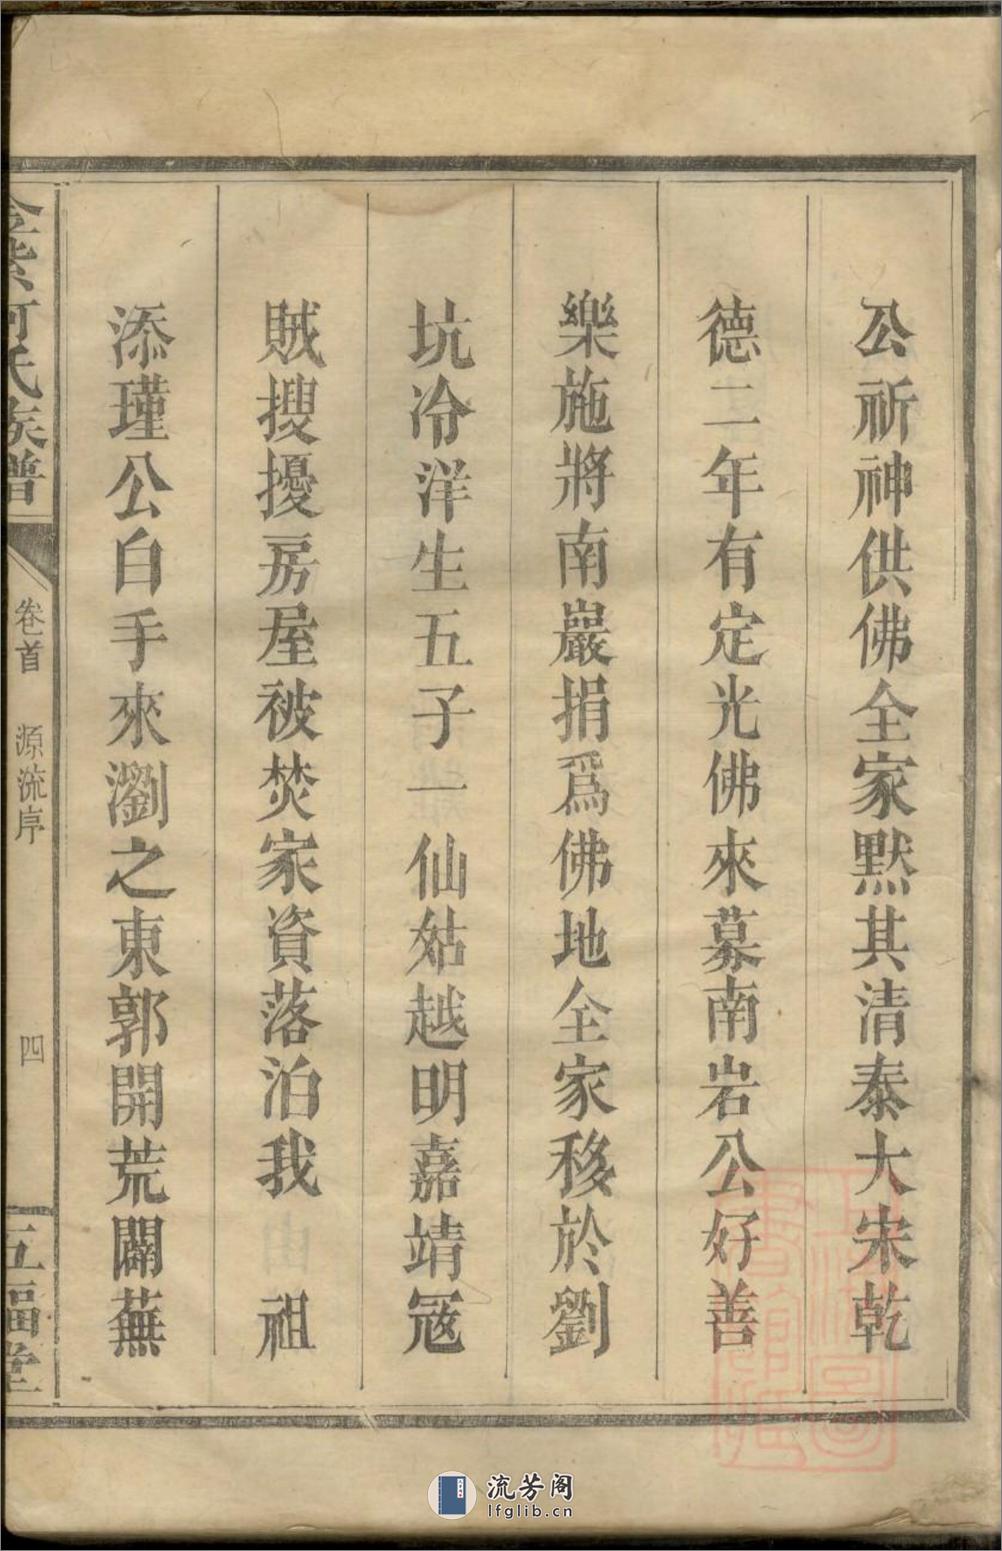 公祈神供佛全家默其清泰大宋乾
德二年有定光佛來募南岩公好善
樂施將南巖捐爲佛地全家移於劉
坑冷洋生五子一仙姑越明嘉靖冦
賊搜擾房屋被焚家資落泊我 祖
添瑾公白手來瀏之東郭開荒闢蕪
何氏族譜
卷首 源流序 四
五福堂
流芳阁
lfglib.cn